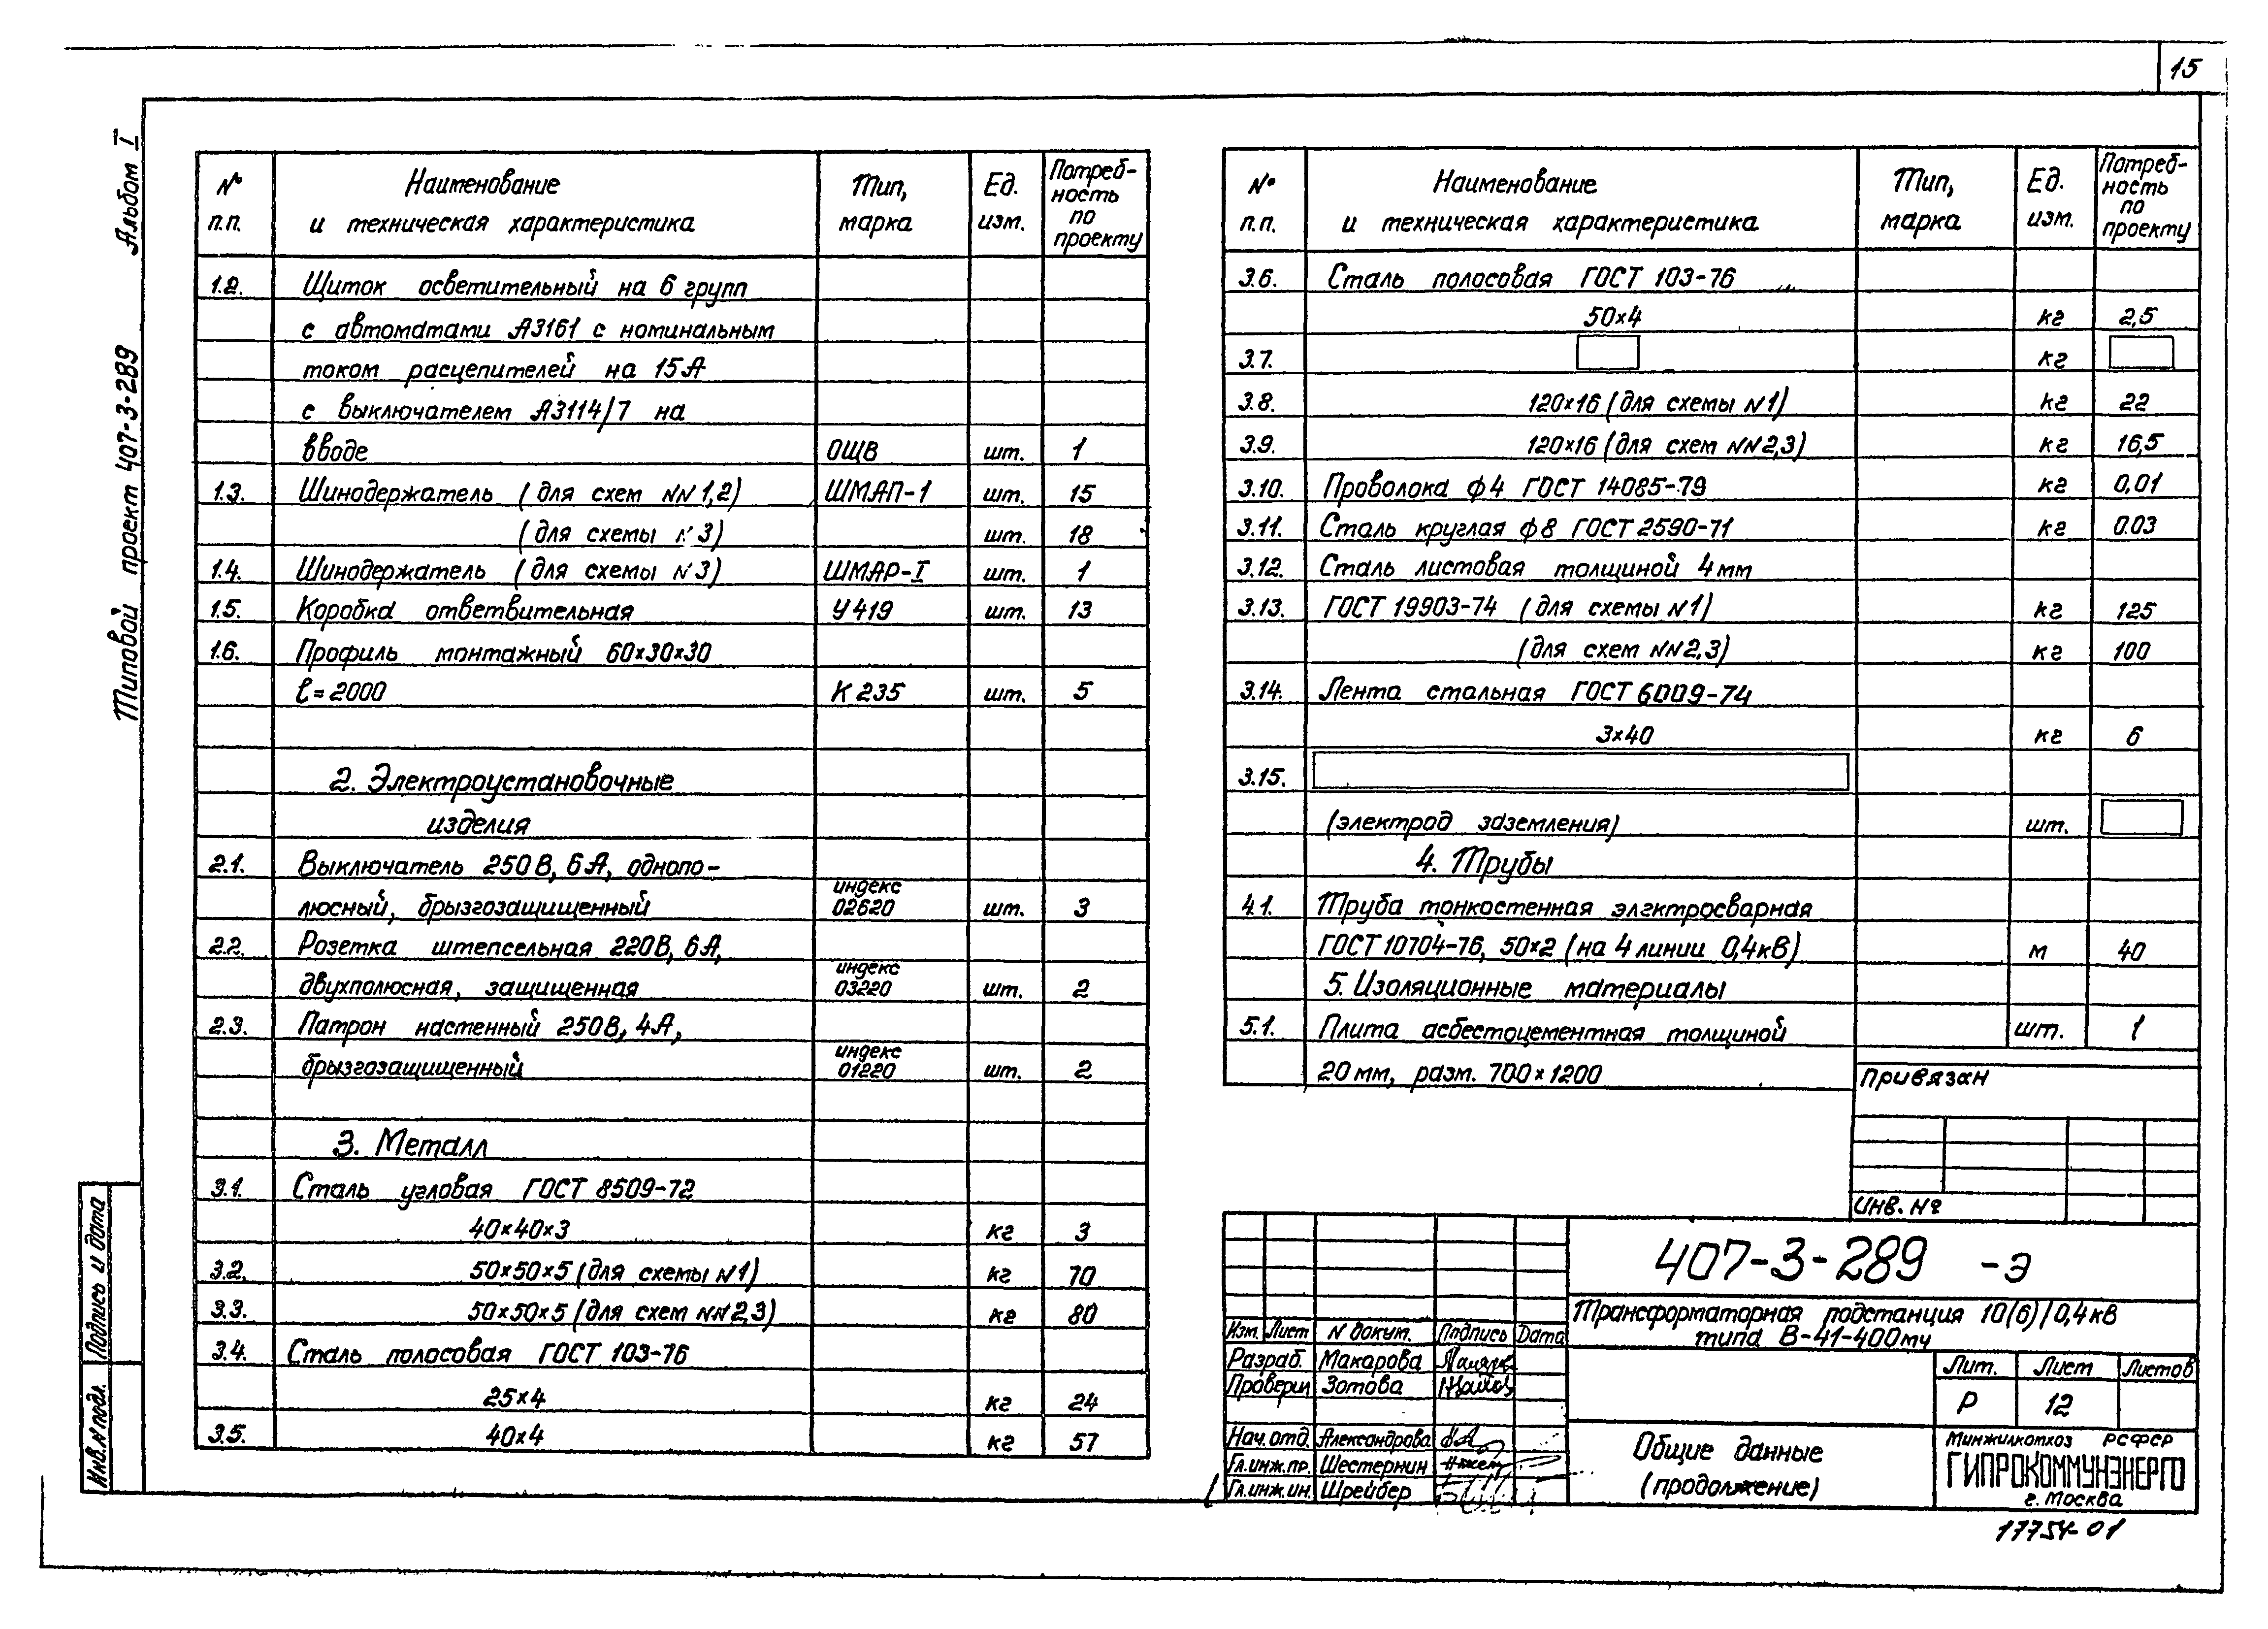 15
Альбом I
Типовой проект 407-3-289
Подпись и дата
Инв.N подл.
№ п.п. Наименование и техническая характеристика Тип, марка Ед. изм. Потреб-ность по проекту
1.2. Щиток осветительный на 6 групп
с автоматами А3161 с номинальным
током расцепителей на 15А
с выключателем А3114/7 на
вводе ОЩВ шт. 1
1.3. Шинодержатель (для схем NN 1,2) ШМАП-1 шт. 15
(для схемы N3) шт. 18
1.4. Шинодержатель (для схемы N3) ШМАР-I шт. 1
1.5. Коробка ответвительная У419 шт. 13
1.6. Профиль монтажный 60×30×30
ℓ=2000 К 235 шт. 5
2. Электроустановочные
изделия
2.1. Выключатель 250В, 6А, однопо-
люсный, брызгозащищенный индекс 02620 шт. 3
2.2. Розетка штепсельная 220В, 6А,
двухполюсная, защищенная индекс 03220 шт. 2
2.3. Патрон настенный 250В, 4А,
брызгозащищенный индекс 01220 шт. 2
3. Металл
3.1. Сталь угловая ГОСТ 8509-72
40×40×3 кг 3
3.2. 50×50×5 (для схемы N1) кг 70
3.3. 50×50×5 (для схем NN2,3) кг 80
3.4. Сталь полосовая ГОСТ 103-76
25×4 кг 24
3.5. 40×4 кг 57
№ п.п. Наименование и техническая характеристика Тип, марка Ед. изм. Потреб-ность по проекту
3.6. Сталь полосовая ГОСТ 103-76
50×4 кг 2,5
3.7. кг
3.8. 120×16 (для схемы N1) кг 22
3.9. 120×16 (для схем NN2,3) кг 16,5
3.10. Проволока ф4 ГОСТ 14085-79 кг 0,01
3.11. Сталь круглая ф8 ГОСТ 2590-71 кг 0.03
3.12. Сталь листовая толщиной 4мм
3.13. ГОСТ 19903-74 (для схемы N1) кг 125
(для схем NN2,3) кг 100
3.14. Лента стальная ГОСТ 6009-74
3×40 кг 6
3.15.
(электрод заземления) шт.
4. Трубы
4.1. Труба тонкостенная электросварная
ГОСТ 10704-76, 50×2 (на 4 линии 0,4кВ) м 40
5. Изоляционные материалы
5.1. Плита асбестоцементная толщиной шт. 1
20мм, разм. 700×1200
Привязан
Инв. №
407-3-289 -Э
Трансформаторная подстанция 10(6)/0,4кВ
типа В-41-400мч
Изм. Лист N докум. Подпись Дата
Разраб. Макарова
Проверил Зотова
Нач.отд. Александрова
Гл.инж.пр. Шестернин
Гл.инж.ин. Шрейбер
Лит. Лист Листов
Р 12
Общие данные
(продолжение)
Минжилкомхоз РСФСР
ГИПРОКОММУНЭНЕРГО
г. Москва
17754-01